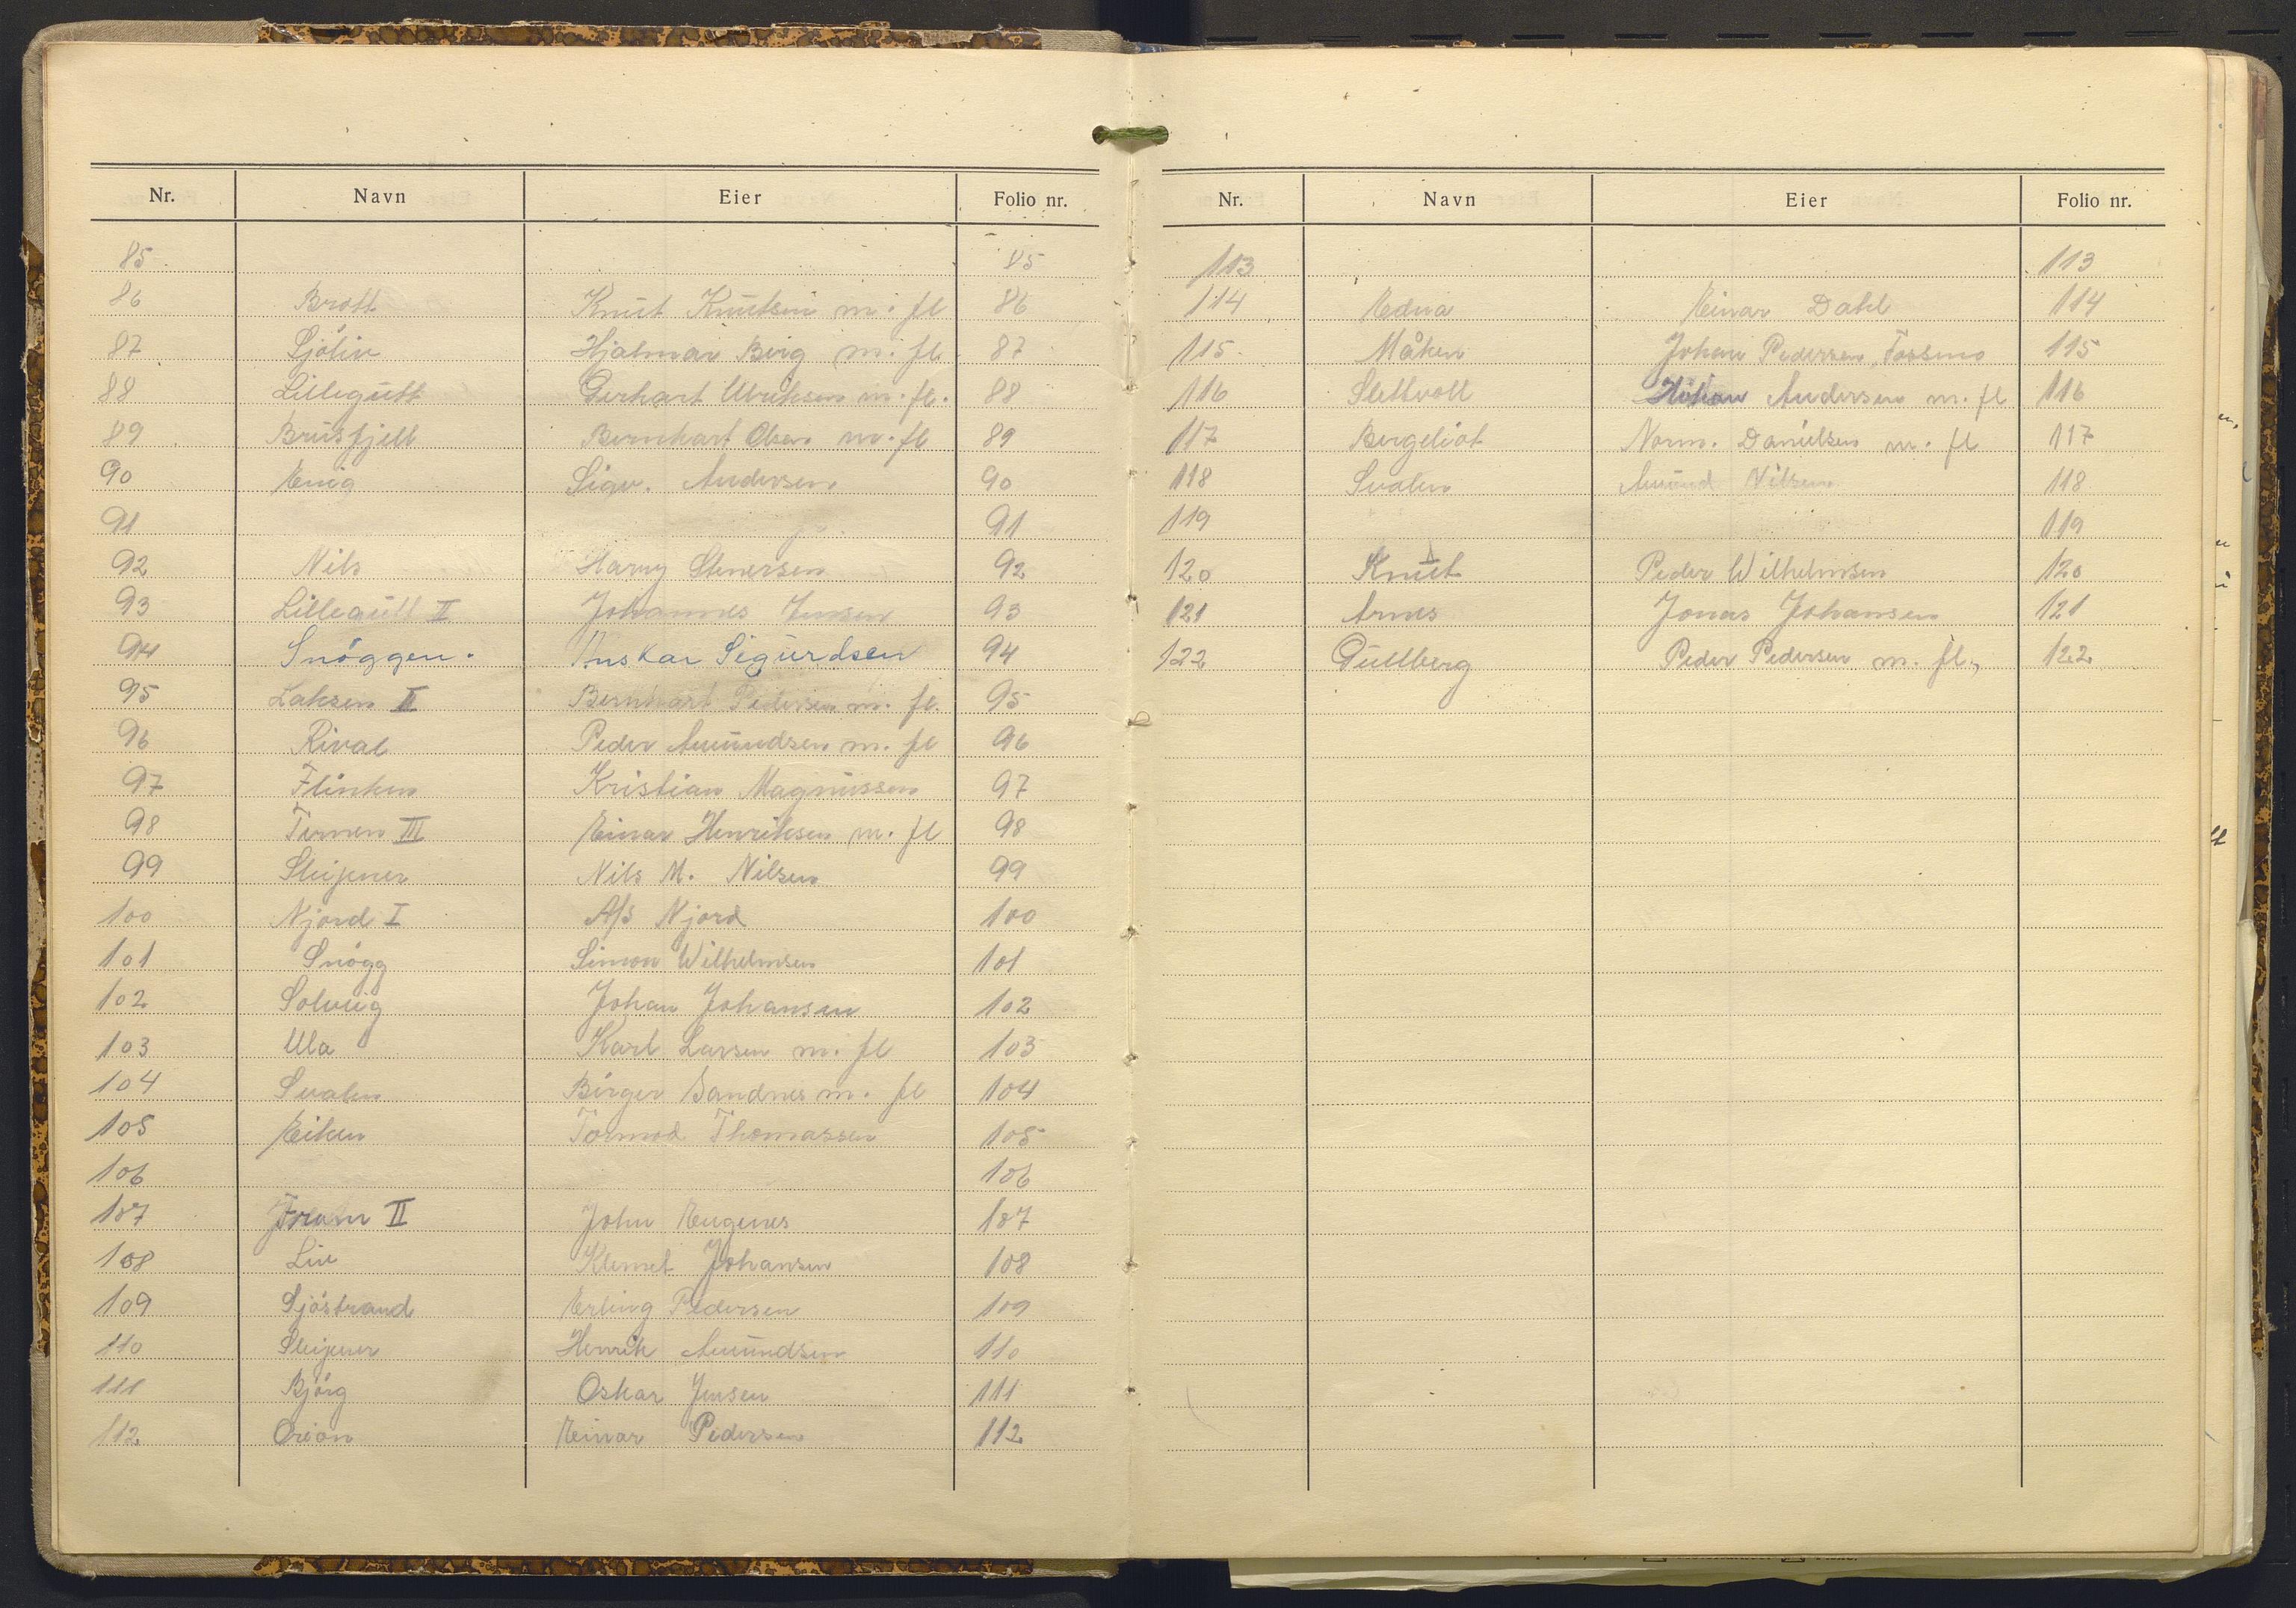 Nr. Navn Eier Folio nr.
85 85
86 Brott Knut Knutsen m. fl 86
87 Sjöliv Hjalmar Berg m. fl. 87
88 Lillegutt Gerhart Ulriksen m. fl. 88
89 Brusfjell Bernhart Olsen m. fl 89
90 Enig Sigv. Andersen 90
91 91
92 Nils Harry Stenersen 92
93 Lillegutt II Johannes Jensen 93
94 Snöggen. Sigurdsen 94
95 Laksen II Bernhart Pedersen m. fl. 95
96 Rival Peder Amundsen m. fl 96
97 Flinken Kristian Magnussen 97
98 Ternen III Einar Henriksen m. fl 98
99 Sleipner Nils M. Nilsen 99
100 Njord I A/S Njord 100
101 Snögg Simon Wilhelmsen 101
102 Solveig Johan Johansen 102
103 Ula Karl Larsen m. fl 103
104 Svalen Birger Sandnes m. fl 104
105 Eiken Tormod Thomassen 105
106 106
107 Fram II John Eugenes 107
108 Liv Klemet Johansen 108
109 Sjöstrand Erling Pedersen 109
110 Sleipner Henrik Amundsen 110
111 Bjørg Oskar Jensen 111
112 Orion Einar Pedersen 112
Nr. Navn Eier Folio nr.
113 113
114 Edna Einar Dahl 114
115 Måken Johan Pedersen, 115
116 Slettvoll Andersen m. fl 116
117 Bergeliot Norm. Danielsen m. fl 117
118 Svalen Amund Nilsen 118
119 119
120 Knut Peder Wilhelmsen 120
121 Arnes Jonas Johansen 121
122 Gullberg Peder Pedersen m. fl., 122